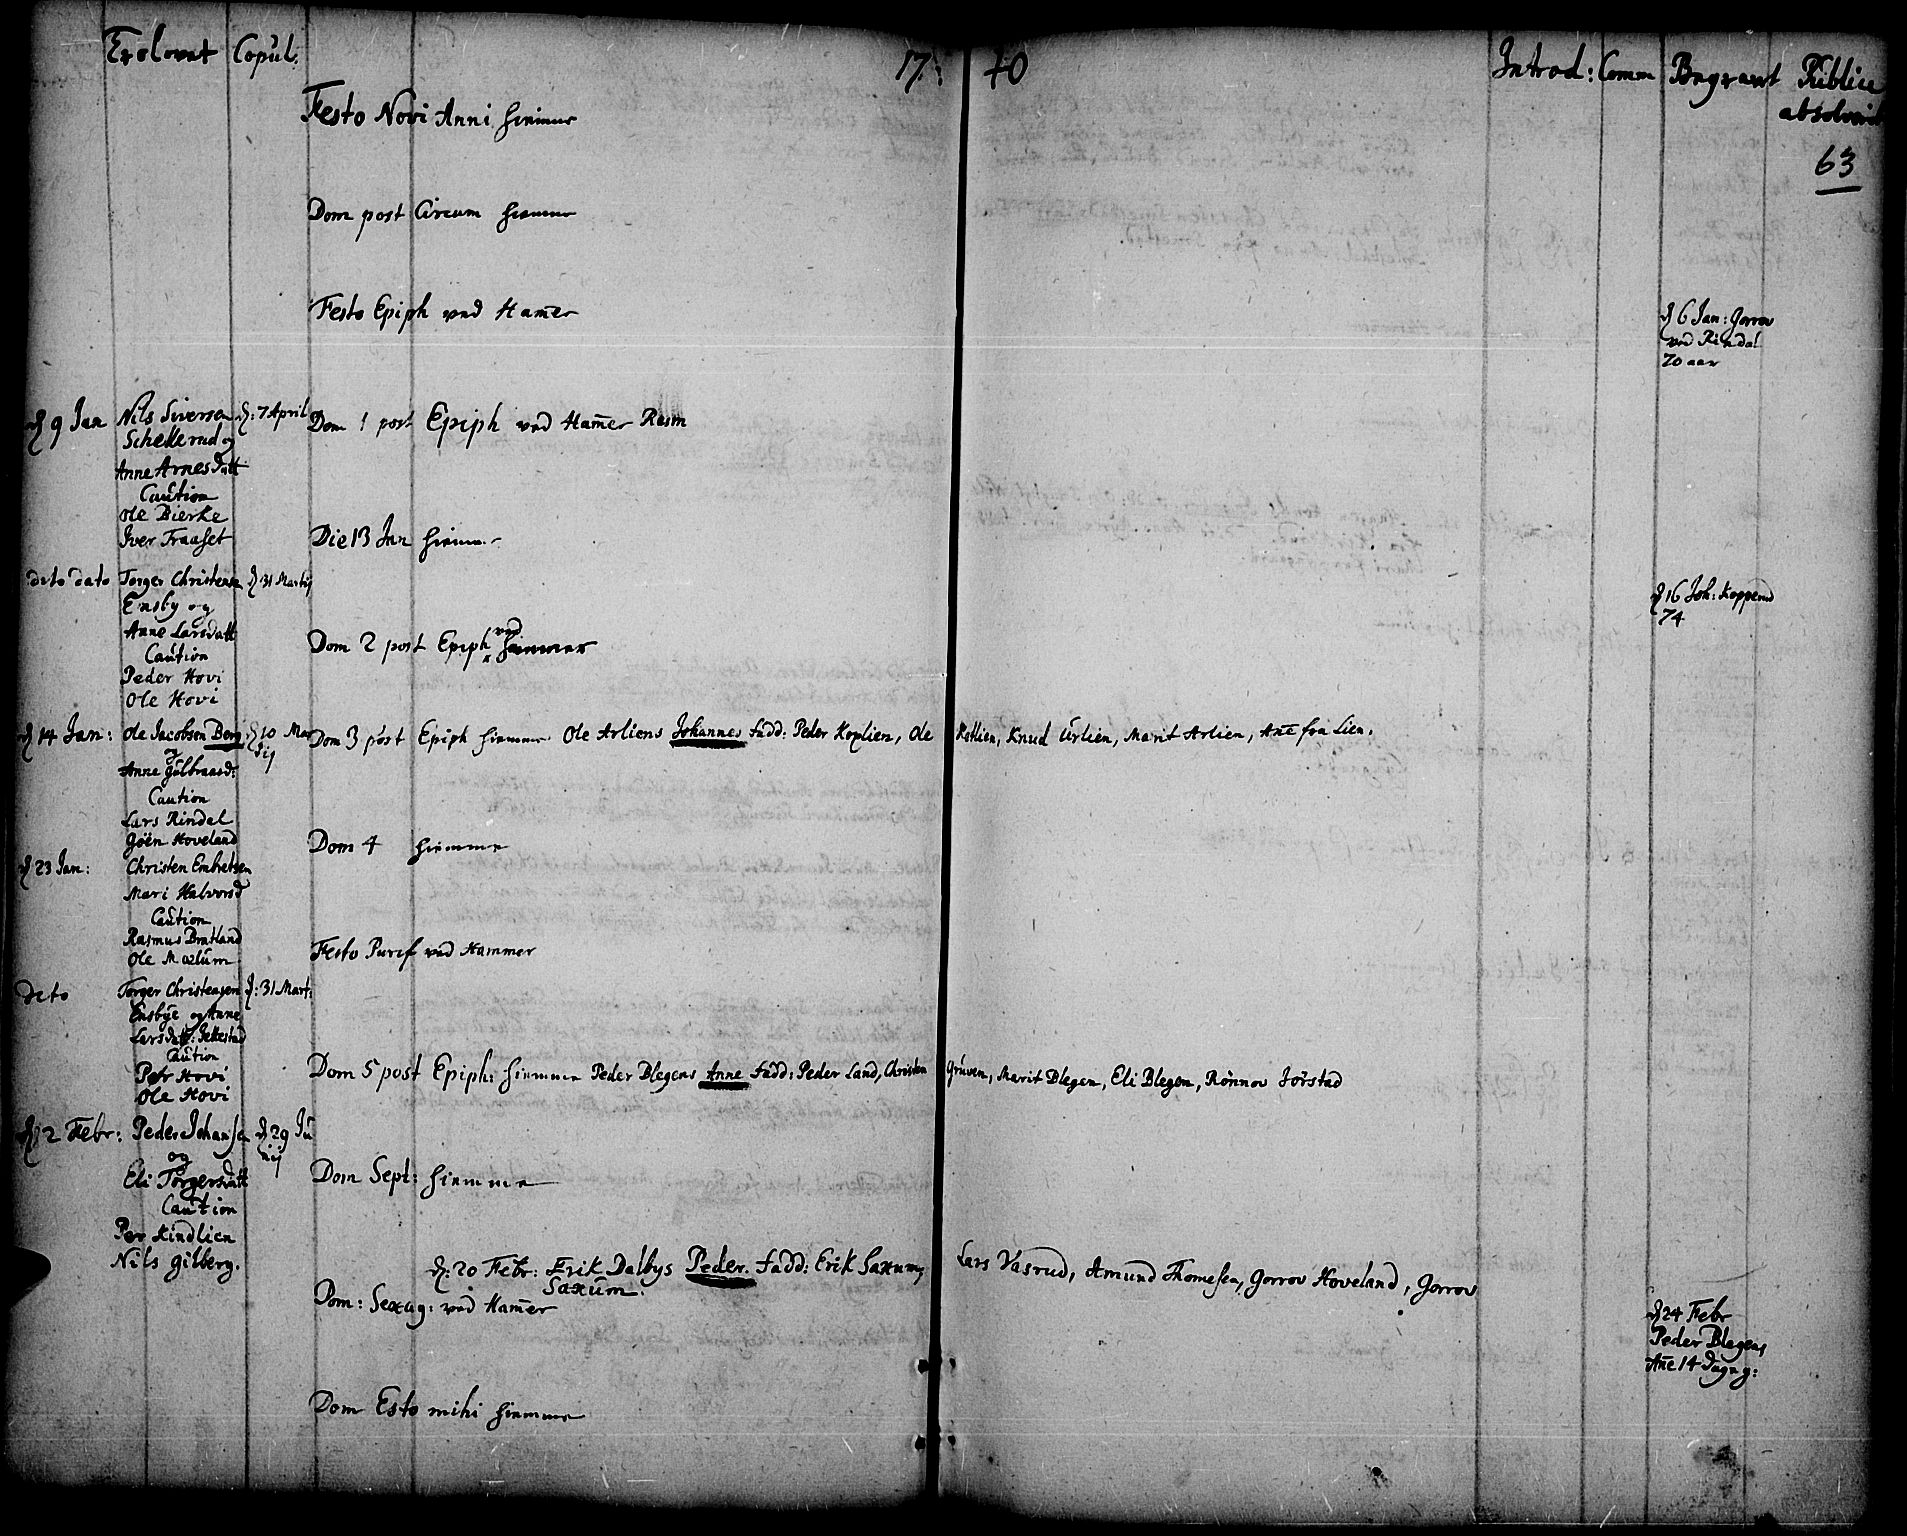 Trolovet Copul. 17 40 Introd: Comm Begravet Publice
absolverit
63
Festo Novi Anni hiemme
Dom post Circum hiemme
Festo Epiph ved Hamer
d 6 Jan: Gorrov
ved Rindal
70 aar
d 9 Jan Nils Siversøn d: 7 April
Schellerud og
Anne Arnesdatt
Caution
Ole Bierke
Iver Traaset
Dom 1 post Epiph ved Hamer Rasm
Die 13 Jan hiemme
dito dato Torger Christensen d 31 Martij
Ensby og
Anne Larsdatt
Caution
Peder Hovi
Ole Hovi
d 16 Joh: Kopperud
74
Dom 2 post Epiph ved Hammer
d 14 Jan: Ole Jacobsen Berg d 10 Martij
og
Anne Gulbrandsd:
Caution
Lars Rindal
Goen Hoveland
Dom 3 post Epiph hiemme Ole Arliens Johannes Fadd: Peder Koplien, Ole Kotlien, Knud Urlien, Marit Arlien, Ane fra Lien.
Dom 4 hiemme
d 23 Jan: Christen Embretsen
Mari Halvorsd
Caution
Rasmus Bratland
Ole Maxlum
Festo Purif ved Hammer
dito Torger Christensen d: 31 Mart:
Ensbye og Anne
Larsdatt: Jekkestad
Caution
Petr Hovi
Ole Hovi
Dom 5 post Epiph: hiemme Peder Blegens Anne Fadd: Peder Land, Christen Gruven, Marit Blegen, Eli Blegen, Rønnov Jørstad
d 12 Febr: Peder Johansen d 29 Junij
og
Eli Torgersdatt
Caution
Per Kindlien
Nils Gilberg.
Dom Sept: hiemme
d: 20 Febr: Erik Dalbys Peder. Fadd: Erik Saxum, Lars Vasrud, Amund Thomesen, Gorrov Hoveland, Gorrov
Saxum.
Dom: Sexag: ved Hamer
d 24 Febr
Peder Blegens
Ane 14 dage g:
Dom Esto mihi hiemme